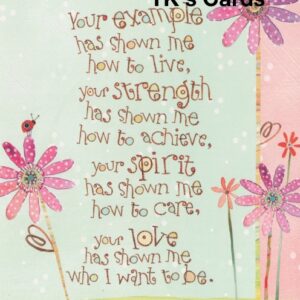 TK's Cards
your example
has shown me
how to live,
your strength
has shown me
how to achieve,
your spirit
has shown me
how to care,
your love
has shown me
who I want to be.